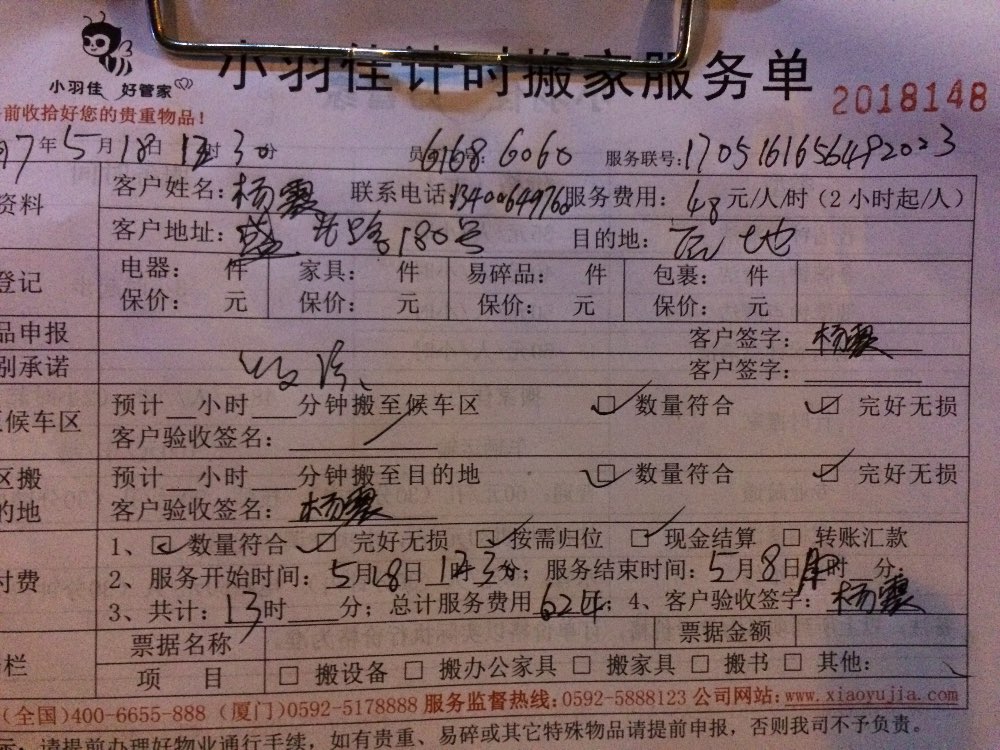 小羽佳 好管家
小羽佳计时搬家服务单
2018148
前收拾好您的贵重物品！
7年5月18日 时30分 员 6168 6060 服务联号:1705161656492023
资料 客户姓名：杨霞 联系电话:13400649760 服务费用：48元/人/时（2小时起/人）
客户地址： 路180号 目的地：
登记 电器： 件 家具： 件 易碎品： 件 包裹： 件
保价： 元 保价： 元 保价： 元 保价： 元
品申报 客户签字：杨霞
别承诺 客户签字：
候车区 预计 小时 分钟搬至候车区 数量符合 完好无损
客户验收签名：
区搬 预计 小时 分钟搬至目的地 数量符合 完好无损
的地 客户验收签名：杨霞
1、 数量符合 完好无损 按需归位 现金结算 转账汇款
付费 2、服务开始时间：5月18日 时 分；服务结束时间：5月8日 时 分；
3、共计：13时 分；总计服务费用624；4、客户验收签字：杨霞
票据名称 票据金额
栏 项 目 搬设备 搬办公家具 搬家具 搬书 其他：
(全国)400-6655-888 (厦门)0592-5178888 服务监督热线:0592-5888123 公司网站:www.xiaoyujia.com
示：请提前办理好物业通行手续，如有贵重、易碎或其它特殊物品请提前申报，否则我司不予负责。